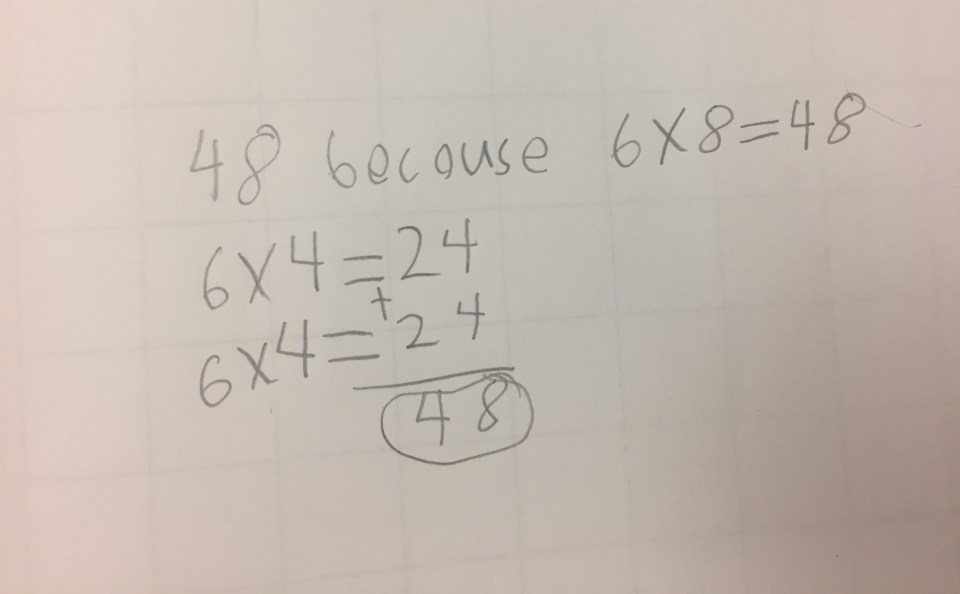 48 because 6x8=48
6x4=24
6x4=+24
48